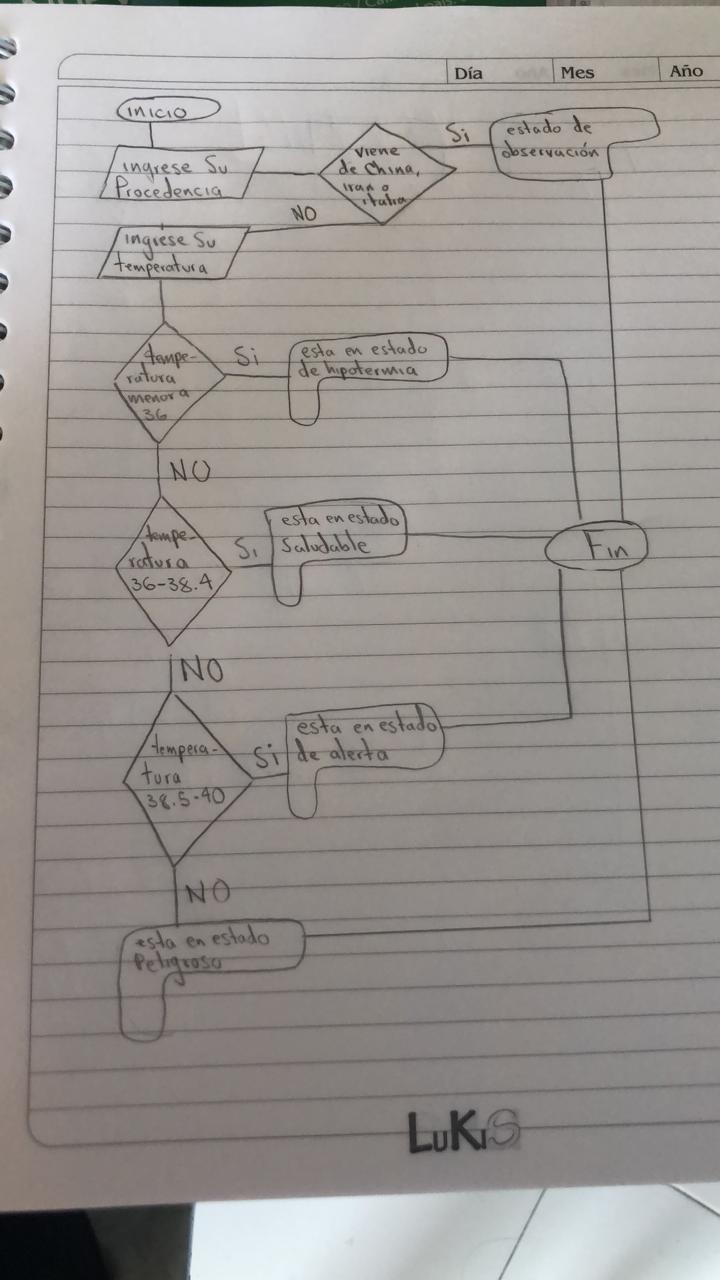 Día Mes Año
inicio
ingrese Su
Procedencia
viene
de China,
iran o
italia
Si
estado de
observación
NO
ingrese Su
temperatura
tempe-
ratura
menor a
36
Si
esta en estado
de hipotermia
NO
tempe-
ratura
36-38.4
Si
esta en estado
Saludable
Fin
NO
tempera-
tura
38.5-40
Si
esta en estado
de alerta
NO
esta en estado
Peligroso
LuKiS